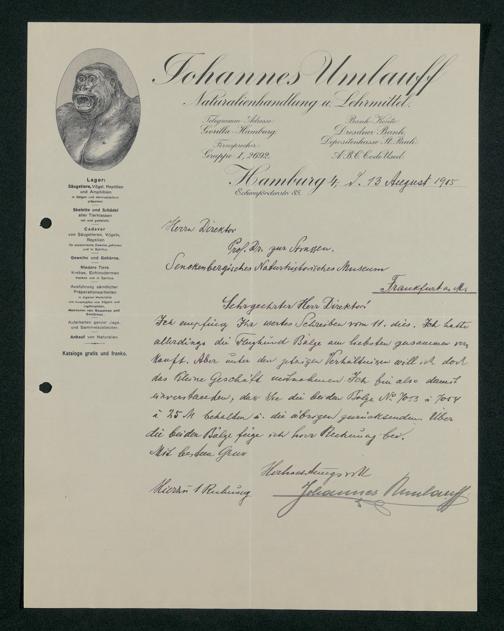 Johannes Umlauff
Naturalienhandlung u. Lehrmittel.
Telegramm-Adresse:
Gorilla-Hamburg.
Fernsprecher:
Gruppe 1, 2692.
Bank-Konto:
Dresdner Bank,
Depositenkasse St. Pauli.
A.B.C. Code Used.
Hamburg 4, d. 13 August 1915
Eckernförderstr. 85.
Lager:
Säugetiere, Vögel, Reptilien
und Amphibien
in Bälgen und dermoplastisch
präpariert.
Skelette und Schädel
aller Tierklassen
roh und gebleicht.
Cadaver
von Säugetieren, Vögeln,
Reptilien
für anatomische Zwecke gefroren
und in Spiritus.
Geweihe und Gehörne.
Niedere Tiere
Krebse, Echinodermen
trocken und in Spiritus.
Ausführung sämtlicher
Präparationsarbeiten
in eigener Werkstatt
Aufarbeiten ganzer Jagd-
und Sammelausbeuten.
Ankauf von Naturalien.
Kataloge gratis und franko.
Herrn Direktor
Prof. Dr. zur Strassen.
Senckenbergisches Naturhistorisches Museum
Frankfurt a. M.
Sehrgeehrter Herr Direktor!
Ich empfing Ihr wertes Schreiben vom 11. dies. Ich hätte
allerdings die Flughund Bälge am liebsten zusammen ver
kauft. Aber unter den jetzigen Verhältnissen will ich doch
das kleine Geschäft mitnehmen. Ich bin also damit
einverstanden, das Sie die beiden Bälge No 7053 u 7054
à 25 M behalten u. die übrigen zurücksenden. Über
die beiden Bälge füge ich hier Rechnung bei.
Mit bestem Gruss
Hochachtungsvoll
Hierzu 1 Rechnung
Johannes Umlauff